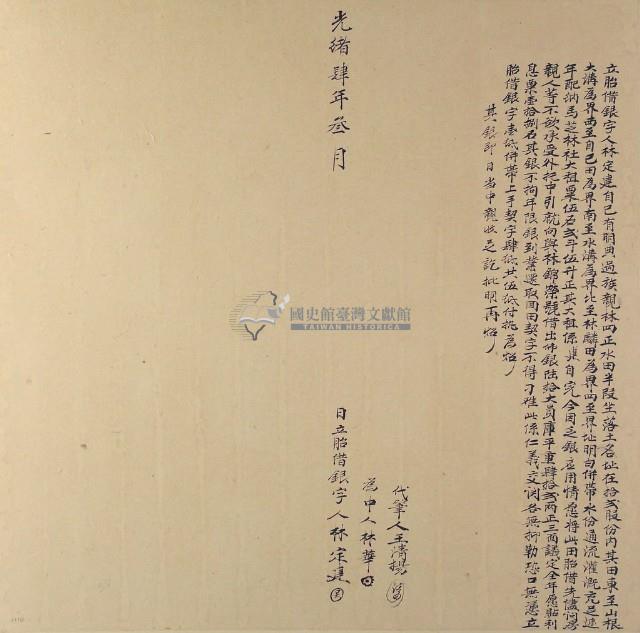 立胎借銀字人林定建自己有明典過族親林四正水田半段坐落土名址在拾貳股份內其田東至山根
大溝為界西至自己田為界南至水溝為界北至林麟田為界四至界址明白併帶水份通流灌溉充足遞
年配納馬芝林社大租粟伍石貳斗伍升正其大租係建自完今因乏銀應用情愿將此田胎借先儘問房
親人等不欲承受外托中引就向與林錦榮號借出佛銀陸拾大員庫平重肆拾貳兩正三面議定全年愿貼利
息粟壹拾捌石其銀不拘年限銀到業還取回田契字不得刁難此係仁義交關各無抑勒恐口無憑立
胎借銀字壹紙併帶上手契字肆紙共伍紙付執為炤
其銀即日當中親收足訖批明再炤
代筆人王清楊
為中人林華
光緒肆年叁月 日立胎借銀字人林定建
國史館臺灣文獻館
TAIWAN HISTORICA